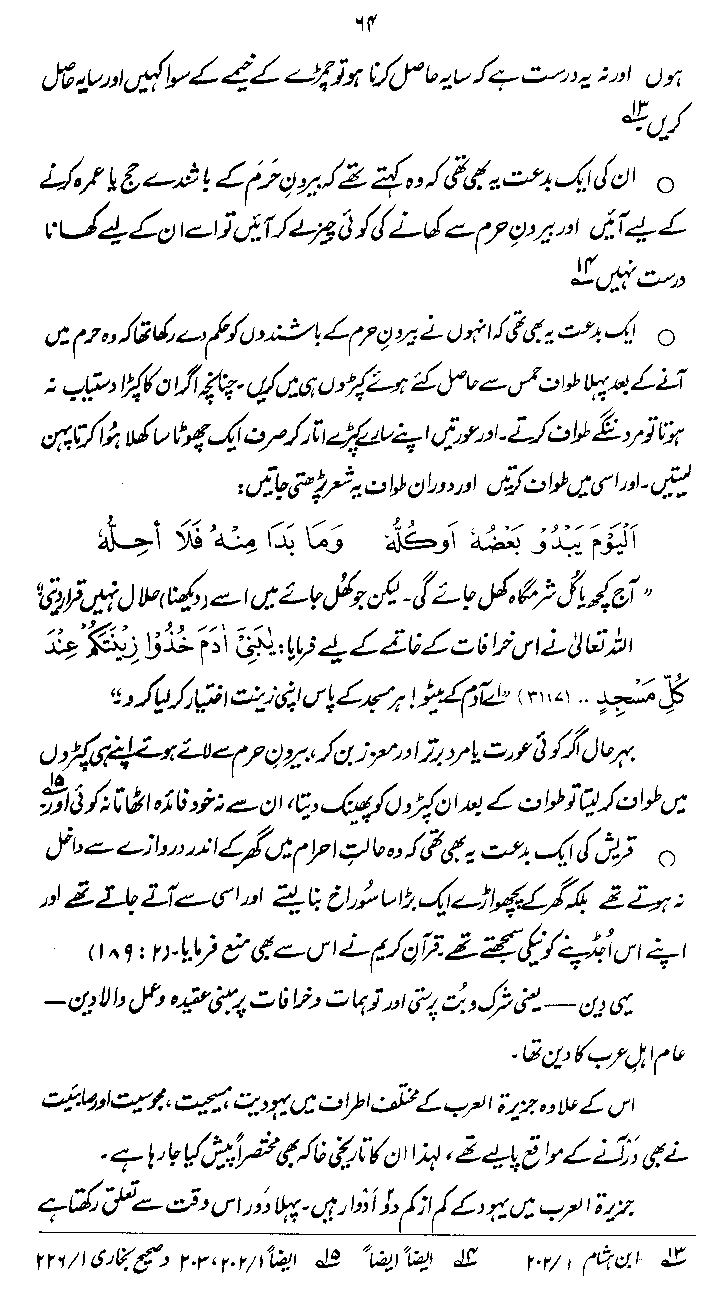 ۶۴
ہوں اور نہ یہ درست ہے کہ سایہ حاصل کرنا ہو تو چمڑے کے خیمے کے سوا کہیں اور سایہ حاصل
کریں ۱۳؎
○ ان کی ایک بدعت یہ بھی تھی کہ وہ کہتے تھے کہ بیرونِ حَرَم کے باشندے حج یا عمرہ کرنے
کے لیے آئیں اور بیرونِ حرم سے کھانے کی کوئی چیز لے کر آئیں تو اسے ان کے لیے کھانا
درست نہیں ۱۴؎
○ ایک بدعت یہ بھی تھی کہ انہوں نے بیرونِ حرم کے باشندوں کو حکم دے رکھا تھا کہ وہ حرم میں
آنے کے بعد پہلا طواف حمس سے حاصل کئے ہوئے کپڑوں ہی میں کریں۔ چنانچہ اگر ان کا کپڑا دستیاب نہ
ہوتا تو مرد ننگے طواف کرتے۔ اور عورتیں اپنے سارے کپڑے اتار کر صرف ایک چھوٹا سا کھلا ہُوا کرتا پہن
لیتیں۔ اور اسی میں طواف کرتیں اور دورانِ طواف یہ شعر پڑھتی جاتیں:
اَلْيَوْمَ يَبْدُوْ بَعْضُهٗ اَوْ كُلُّهٗ وَمَا بَدَا مِنْهُ فَلَا أُحِلُّهٗ
"آج کچھ یا کُل شرمگاہ کھل جائے گی۔ لیکن جو کھُل جائے میں اسے (دیکھنا) حلال نہیں قرار دیتی"
اللہ تعالیٰ نے اس خرافات کے خاتمے کے لیے فرمایا: يٰبَنِيْٓ اٰدَمَ خُذُوْا زِيْنَتَكُمْ عِنْدَ
كُلِّ مَسْجِدٍ .. (۳۱:۷) "اے آدم کے بیٹو! ہر مسجد کے پاس اپنی زینت اختیار کر لیا کرو"
بہرحال اگر کوئی عورت یا مرد برتر اور معزز بن کر، بیرونِ حرم سے لائے ہوئے اپنے ہی کپڑوں
میں طواف کر لیتا تو طواف کے بعد ان کپڑوں کو پھینک دیتا، ان سے نہ خود فائدہ اٹھاتا نہ کوئی اور ۱۵؎
○ قریش کی ایک بدعت یہ بھی تھی کہ وہ حالتِ احرام میں گھر کے اندر دروازے سے داخل
نہ ہوتے تھے بلکہ گھر کے پچھواڑے ایک بڑا سا سُوراخ بنا لیتے اور اسی سے آتے جاتے تھے اور
اپنے اس اُجڈپنے کو نیکی سمجھتے تھے۔ قرآنِ کریم نے اس سے بھی منع فرمایا۔ (۲: ۱۸۹)
یہی دین — یعنی شرک و بُت پرستی اور توہمات و خرافات پر مبنی عقیدہ و عمل والا دین —
عام اہلِ عرب کا دین تھا۔
اس کے علاوہ جزیرۃ العرب کے مختلف اطراف میں یہودیت، مسیحیت، مجوسیت اور صابئیت
نے بھی دَر آنے کے مواقع پا لیے تھے، لہٰذا ان کا تاریخی خاکہ بھی مختصراً پیش کیا جا رہا ہے۔
جزیرۃ العرب میں یہود کے کم از کم دو اَدوار ہیں۔ پہلا دَور اس وقت سے تعلق رکھتا ہے
۱۳؎ ابن ہشام ۱/۲۰۲ ۱۴؎ ایضاً ایضاً ۱۵؎ ایضاً ۱/۲۰۲، ۲۰۳ و صحیح بخاری ۱/۲۲۶